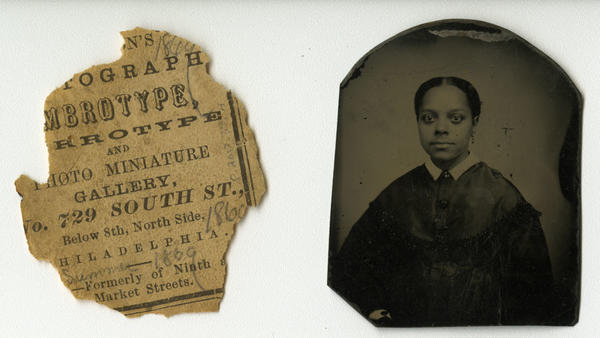 N'S
TOGRAPH
MBROTYPE,
RROTYPE
AND
PHOTO MINIATURE
GALLERY,
No. 729 SOUTH ST.,
Below 8th, North Side,
1860
HILADELPHIA.
Summer 1869
—Formerly of Ninth &
Market Streets.